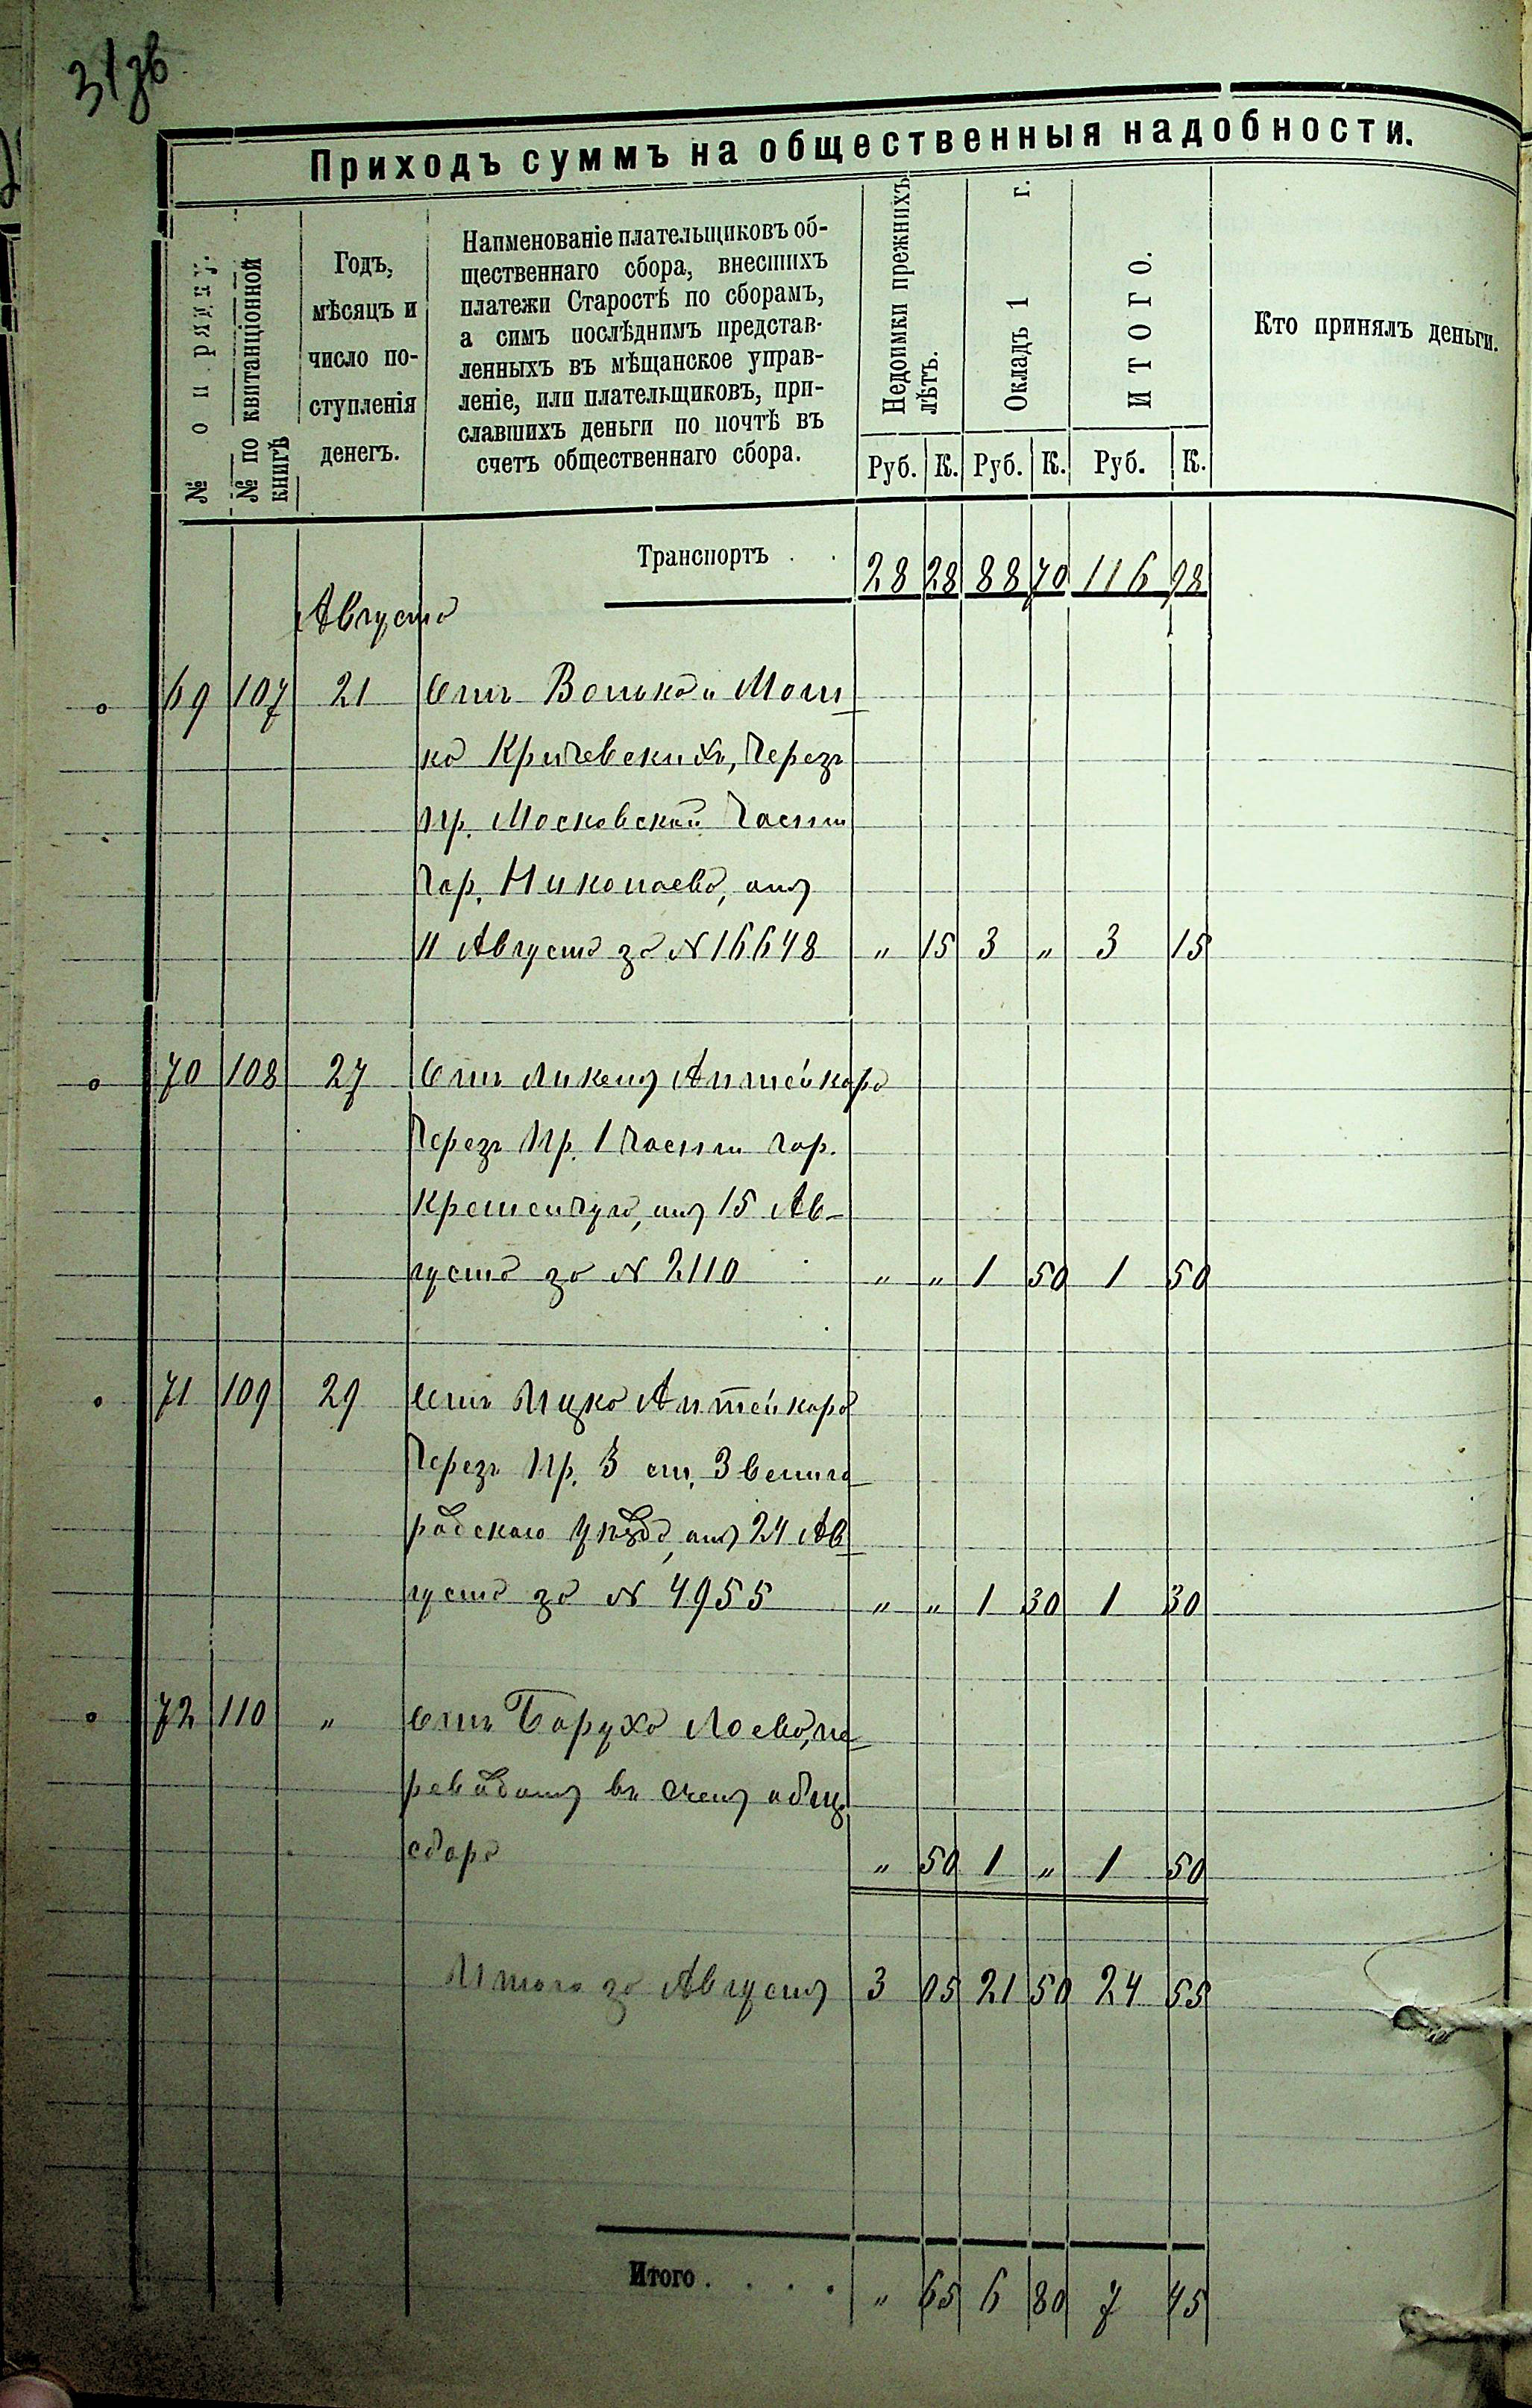 31 зв
Приходъ суммъ на общественныя надобности.
№ по ряду.
№ по квитанціонной книгѣ
Годъ,
мѣсяцъ и
число по-
ступленія
денегъ.
Наименованіе плательщиковъ об-
щественнаго сбора, внесшихъ
платежи Старостѣ по сборамъ,
а симъ послѣднимъ представ-
ленныхъ въ мѣщанское управ-
леніе, или плательщиковъ, при-
славшихъ деньги по почтѣ въ
счетъ общественнаго сбора.
Недоимки прежнихъ лѣтъ.
Окладъ 1 г.
ИТОГО.
Кто принялъ деньги.
Руб. К. Руб. К. Руб. К.
Транспортъ . . 28 28 88 70 116 98
Августа
69 107 21 Отъ Волька и Мош
ка Кричевскихъ, Через
Пр. Московской Части
Гор. Николаева, отъ
11 Августа за № 16648 „ 15 3 „ 3 15
70 108 27 Отъ Аптейкара
Через Пр. 1 Части Гор.
Кременчуга, отъ 15 Ав-
густа за № 2110 „ „ 1 50 1 50
71 109 29 Отъ Ицка Аптейкара
Через Пр. 3 ст. Звениго
родскаго уѣзда, отъ 24 Ав
густа за № 4955 „ „ 1 30 1 30
72 110 „ Отъ Баруха Лоева, пе
въ счетъ общ.
сбора „ 50 1 „ 1 50
Итого за Августъ 3 05 21 50 24 55
Итого . . . . „ 65 6 80 7 45